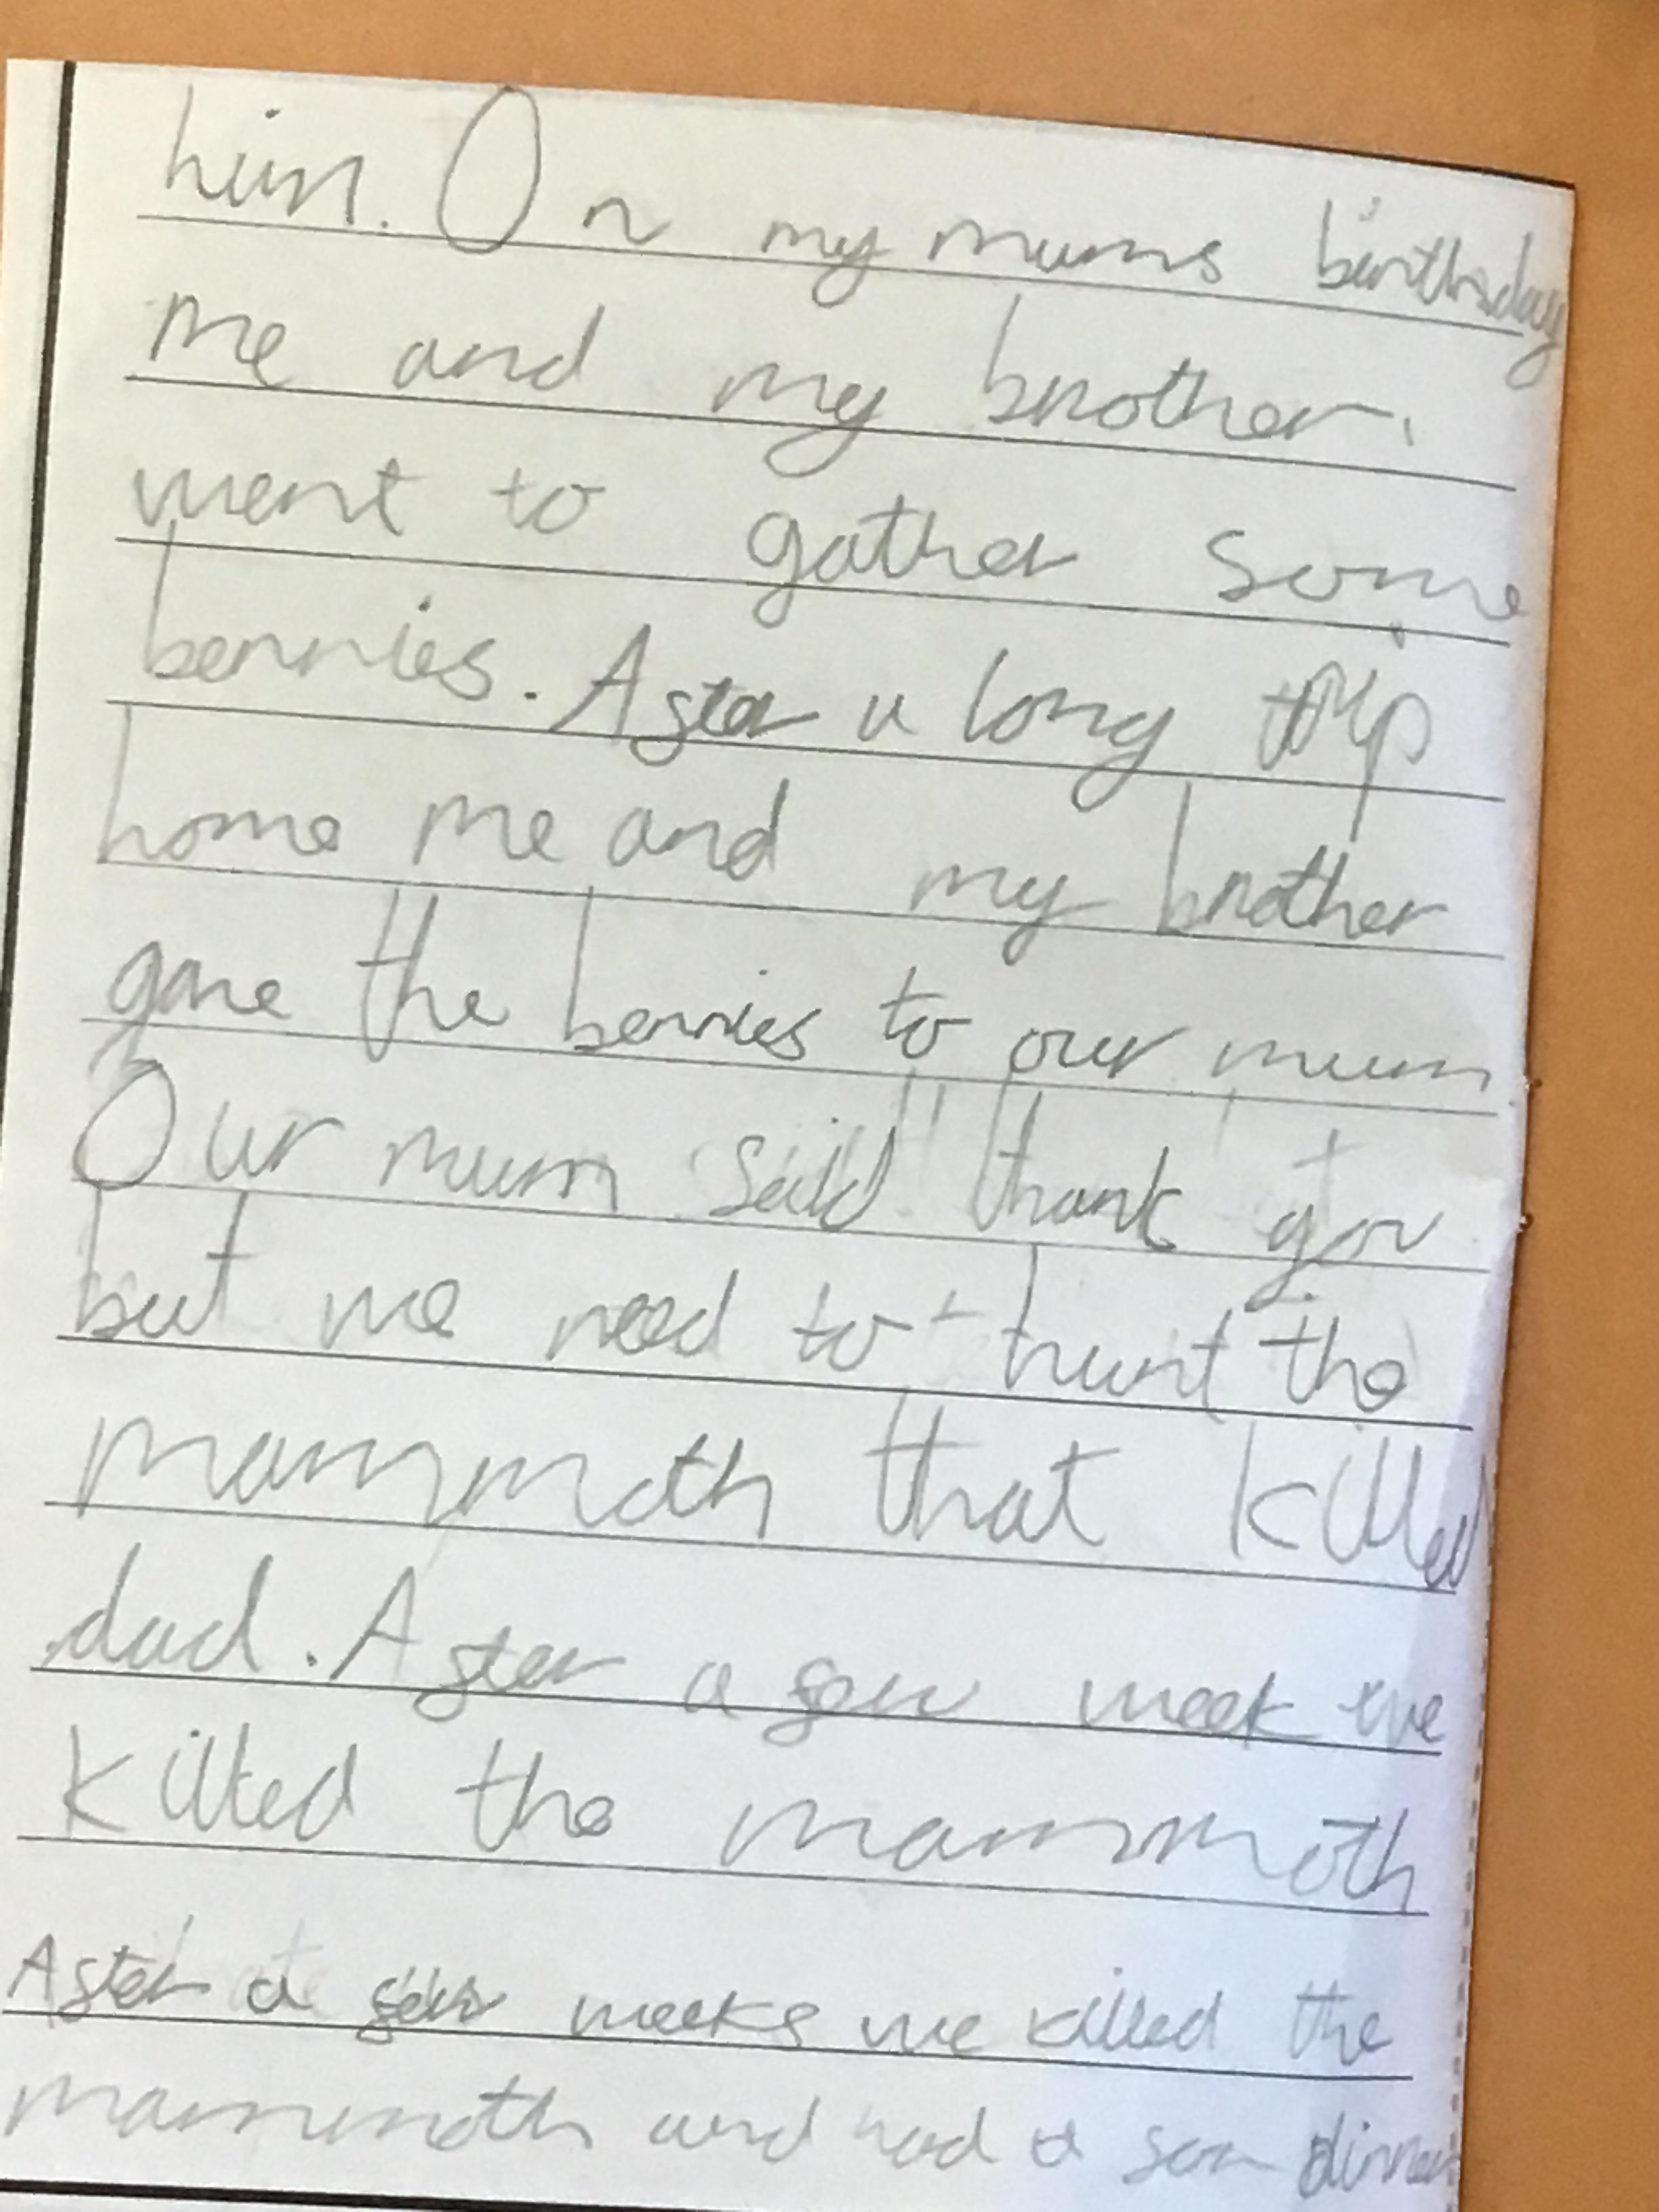 him. On my mums birthday
me and my brother
went to gather some
berries. After a long trip
home me and my brother
gave the berries to our mum
Our mum said "thank you
but we need to hunt the
mammoth that killed
dad. After a few week we
killed the mammoth
After a few weeks we killed the
mammoth and had a dinner